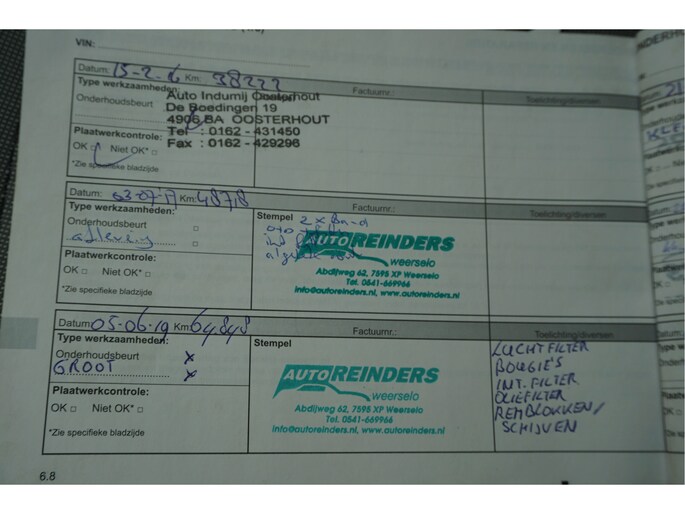 VIN:
Datum: 15-2-16 Km: 38222
Type werkzaamheden: Factuurnr.: Toelichting/diversen
Onderhoudsbeurt
Auto Indumij Oosterhout
De Boedingen 19
4906 BA OOSTERHOUT
Tel : 0162 - 431450
Fax : 0162 - 429296
Plaatwerkcontrole:
OK □ Niet OK* □
*Zie specifieke bladzijde
Datum: 03-07-17 Km: 48718 Factuurnr.: Toelichting/diversen
Type werkzaamheden: Stempel 2 x
Onderhoudsbeurt □
aflevering □
AUTO REINDERS
weerselo
Abdijweg 62, 7595 XP Weerselo
Tel. 0541-669966
info@autoreinders.nl, www.autoreinders.nl
Plaatwerkcontrole:
OK □ Niet OK* □
*Zie specifieke bladzijde
Datum: 05-06-19 Km: 64848 Factuurnr.: Toelichting/diversen
Type werkzaamheden: Stempel
Onderhoudsbeurt x
GROOT x
AUTO REINDERS
weerselo
Abdijweg 62, 7595 XP Weerselo
Tel. 0541-669966
info@autoreinders.nl, www.autoreinders.nl
LUCHTFILTER
BOUGIE'S
INT. FILTER
OLIEFILTER
REMBLOKKEN/
SCHIJVEN
Plaatwerkcontrole:
OK □ Niet OK* □
*Zie specifieke bladzijde
6.8